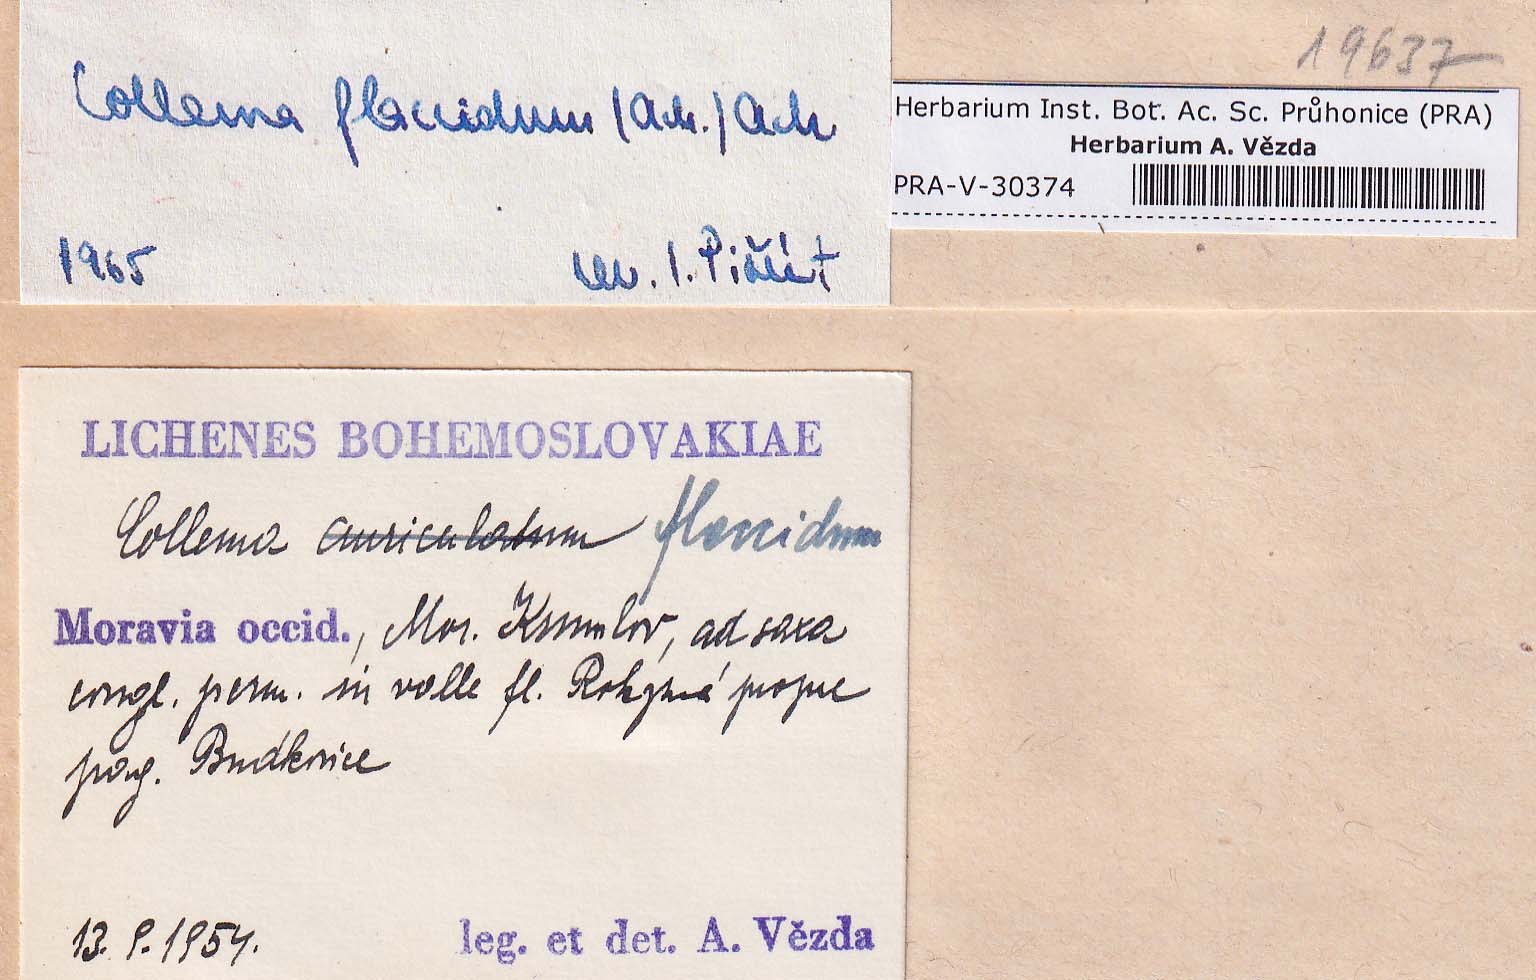 Collema flaccidum (Ach.) Ach
1965 rev. I. Pišút
19637
Herbarium Inst. Bot. Ac. Sc. Průhonice (PRA)
Herbarium A. Vězda
PRA-V-30374
LICHENES BOHEMOSLOVAKIAE
Collema auriculatum flaccidum
Moravia occid., Mor. Krumlov, ad saxa
congl. perm. in valle fl. Rokytná prope
pag. Budkovice
13. 9. 1954. leg. et det. A. Vězda